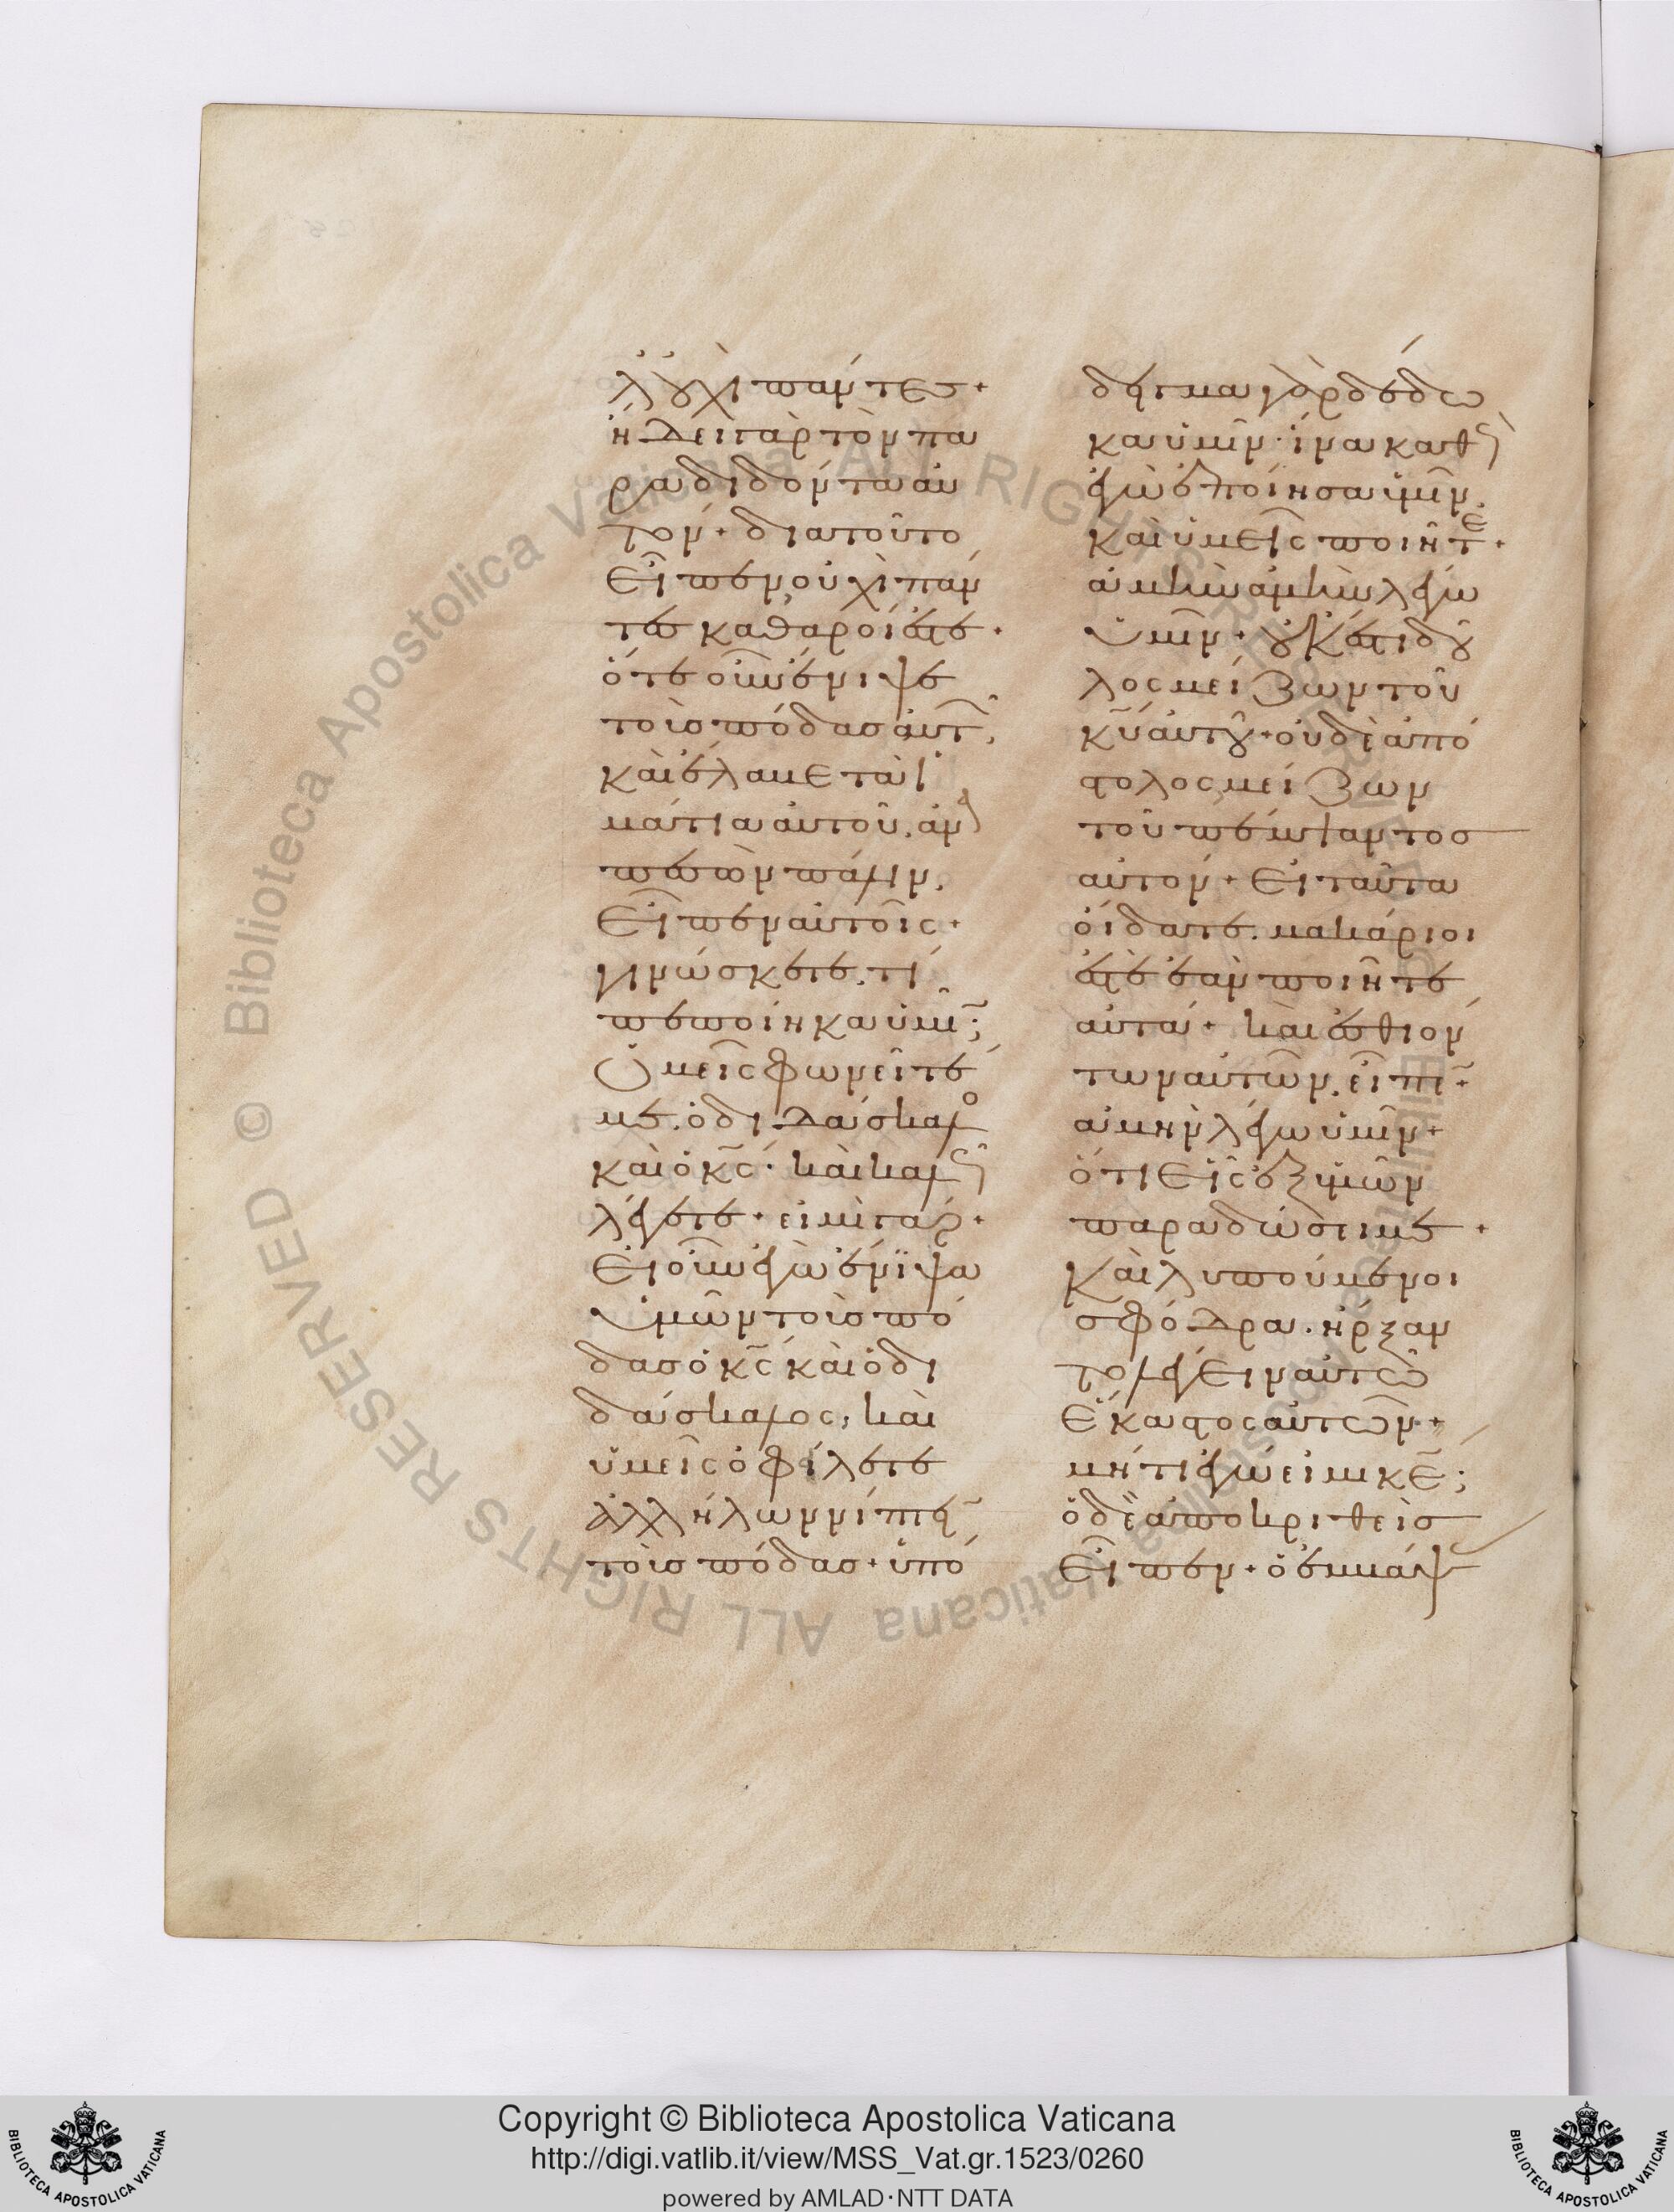 λ' οὐχὶ πάντες.
ἤδει γὰρ τὸν πα
ραδιδόντα αὐ
τόν. διατοῦτο
εἶπεν οὐχὶ πάν
τες καθαροί ἐστε.
ὅτε οὖν ἔνιψε
τοὺς πόδας αὐτ,
καὶ ἔλαβε τὰ ἱ
μάτια αὐτοῦ. ἀν
πεσὼν πάλιν.
εἶπεν αὐτοῖς.
γινώσκετε. τί
πεποίηκα ὑμῖ;
ὑμεῖς φωνεῖτέ
με. ὁ διδάσκαλο
καὶ ὁ κς. καὶ καλ
λέγετε. εἰμὶ γάρ.
εἰ οὖν ἐγὼ ἔνιψα
ὑμῶν τοὺς πό
δας ὁ κς καὶ ὁ δι
δάσκαλος, καὶ
ὑμεῖς ὀφίλετε
ἀλλήλων νίπτει
τοὺς πόδας. ὑπό
δειγμα γὰρ δέδω
κα ὑμῖν. ἵνα καθ
ἐγὼ ἐποίησα ὑμῖν,
καὶ ὑμεῖς ποιῆτε.
ἀμὴν ἀμὴν λέγω
ὑμῖν. οὐκ ἔστι δοῦ
λος μείζων τοῦ
κυ αὐτοῦ. οὐδὲ ἀπό
στολος μείζων
τοῦ πέμψαντος
αὐτόν. εἰ ταῦτα
οἴδατε. μακάριοί
ἐστε ἐὰν ποιῆτε
αὐτά. καὶ ἐσθιόν
των αὐτῶν, εἶπε.
ἀμὴν λέγω ὑμῖν.
ὅτι εἷς ἐξ ὑμῶν
παραδώσει με.
καὶ λυπούμενοι
σφόδρα. ἤρξαν
το λέγειν αὐτῶ
ἕκαστος αὐτῶν.
μήτι ἐγώ εἰμι κε;
ὁ δὲ ἀποκριθεὶς
εἶπεν. ὁ ἐμβάψ
Copyright © Biblioteca Apostolica Vaticana
http://digi.vatlib.it/view/MSS_Vat.gr.1523/0260
powered by AMLAD·NTT DATA
BIBLIOTECA APOSTOLICA VATICANA
BIBLIOTECA APOSTOLICA VATICANA
© Biblioteca Apostolica Vaticana ALL RIGHTS RESERVED
© Biblioteca Apostolica Vaticana ALL RIGHTS RESERVED